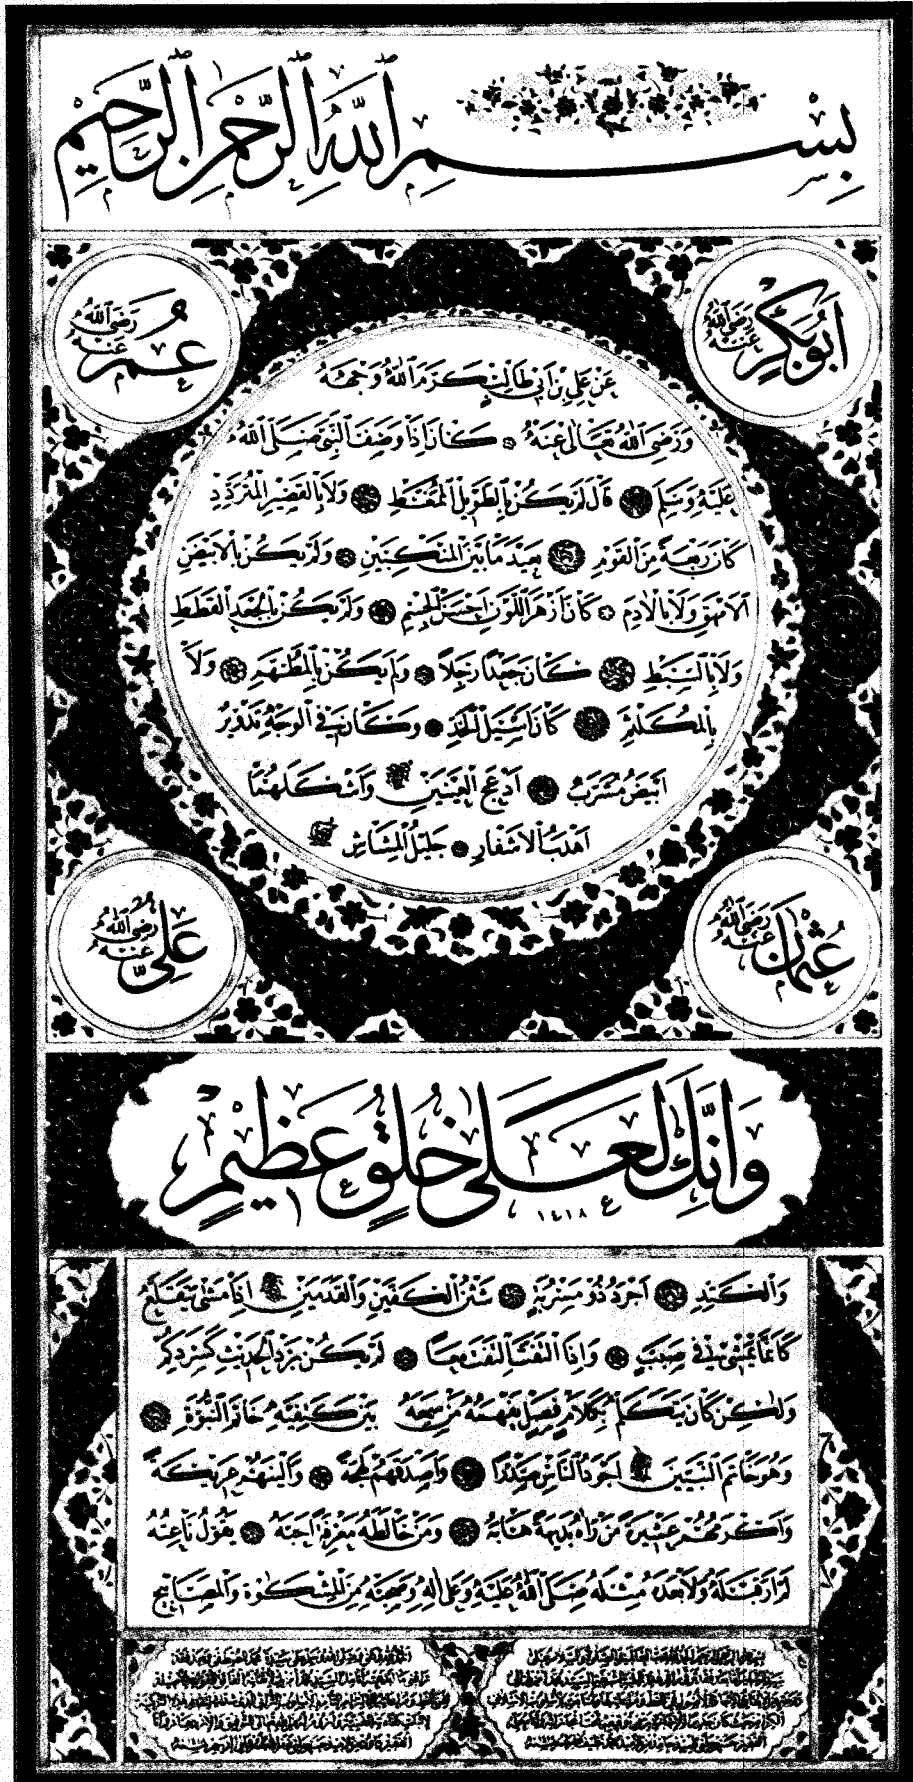 بِسْمِ ٱللَّهِ ٱلرَّحْمٰنِ ٱلرَّحِيمِ
أَبُو بَكْرٍ رَضِيَ ٱللَّهُ عَنْهُ
عُمَرُ رَضِيَ ٱللَّهُ عَنْهُ
عَنْ عَلِيِّ بْنِ أَبِي طَالِبٍ كَرَّمَ ٱللَّهُ وَجْهَهُ
وَرَضِيَ ٱللَّهُ تَعَالَى عَنْهُ كَانَ إِذَا وَصَفَ ٱلنَّبِيَّ صَلَّى ٱللَّهُ
عَلَيْهِ وَسَلَّمَ قَالَ لَمْ يَكُنْ بِالطَّوِيلِ ٱلْمُمَّغِطِ وَلَا بِالْقَصِيرِ ٱلْمُتَرَدِّدِ
كَانَ رَبْعَةً مِنَ ٱلْقَوْمِ بَعِيدَ مَا بَيْنَ ٱلْمَنْكِبَيْنِ وَلَمْ يَكُنْ بِالْأَبْيَضِ
ٱلْأَمْهَقِ وَلَا بِالْآدَمِ كَانَ أَزْهَرَ ٱللَّوْنِ أَحْسَنَ ٱلْجِسْمِ وَلَمْ يَكُنْ بِالْجَعْدِ ٱلْقَطَطِ
وَلَا بِالسَّبْطِ كَانَ جَعْدًا رَجِلًا وَلَمْ يَكُنْ بِالْمُطَهَّمِ وَلَا
بِالْمُكَلْثَمِ كَانَ أَسِيلَ ٱلْخَدِّ وَكَانَ فِي ٱلْوَجْهِ تَدْوِيرٌ
أَبْيَضُ مُشْرَبٌ أَدْعَجُ ٱلْعَيْنَيْنِ وَأَشْكَلَهُمَا
أَهْدَبُ ٱلْأَشْفَارِ جَلِيلُ ٱلْمُشَاشِ
عُثْمَانُ رَضِيَ ٱللَّهُ عَنْهُ
عَلِيٌّ رَضِيَ ٱللَّهُ عَنْهُ
وَإِنَّكَ لَعَلَى خُلُقٍ عَظِيمٍ
١٤١٨
وَٱلْكَتَدِ أَجْرَدُ ذُو مَسْرُبَةٍ شَثْنُ ٱلْكَفَّيْنِ وَٱلْقَدَمَيْنِ إِذَا مَشَى يَتَقَلَّعُ
كَأَنَّمَا يَمْشِي فِي صَبَبٍ وَإِذَا ٱلْتَفَتَ ٱلْتَفَتَ مَعًا لَمْ يَكُنْ يَرُدُّ ٱلْحَدِيثَ كَسَرْدِكُمْ
وَلٰكِنْ كَانَ يَتَكَلَّمُ بِكَلَامٍ فَصْلٍ يَفْهَمُهُ مَنْ سَمِعَهُ بَيْنَ كَتِفَيْهِ خَاتَمُ ٱلنُّبُوَّةِ
وَهُوَ خَاتَمُ ٱلنَّبِيِّينَ أَجْوَدُ ٱلنَّاسِ صَدْرًا وَأَصْدَقُهُمْ لَهْجَةً وَأَلْيَنُهُمْ عَرِيكَةً
وَأَكْرَمُهُمْ عَشِيرَةً مَنْ رَآهُ بَدِيهَةً هَابَهُ وَمَنْ خَالَطَهُ مَعْرِفَةً أَحَبَّهُ يَقُولُ نَاعِتُهُ
لَمْ أَرَ قَبْلَهُ وَلَا بَعْدَهُ مِثْلَهُ صَلَّى ٱللَّهُ عَلَيْهِ وَعَلَى آلِهِ وَصَحْبِهِ مِنَ ٱلْمِشْكَوٰةِ وَٱلْمَصَابِيحِ